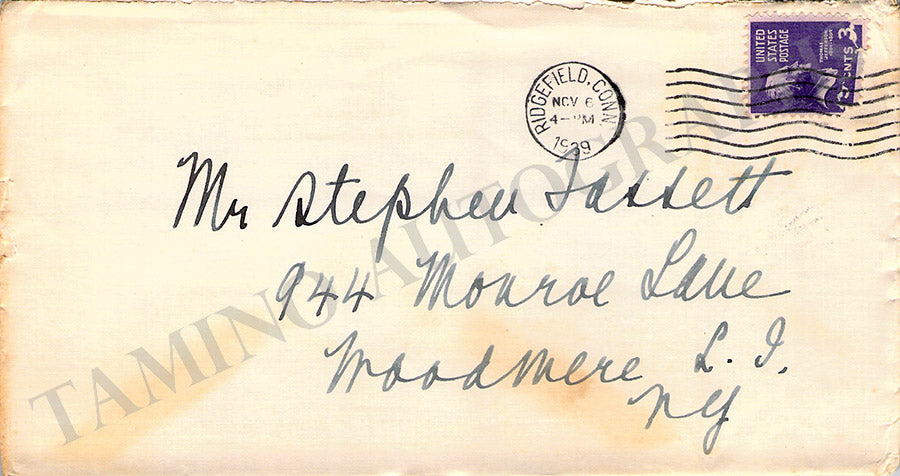 UNITED STATES POSTAGE
THOMAS JEFFERSON
3 CENTS
RIDGEFIELD, CONN
NOV 6
4-PM
1939
Mr Stephen Fassett
944 Monroe Lane
Woodmere L. I.
NY
TAMINO AUTOGRAPHS